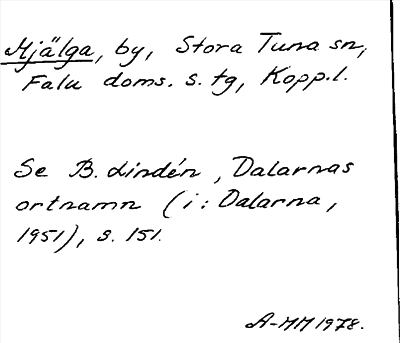 Mjälga, by, Stora Tuna sn,
Falu doms. s. tg, Kopp.l.
Se B. Lindén, Dalarnas
ortnamn (i: Dalarna,
1951), s. 151.
A-MM 1978.